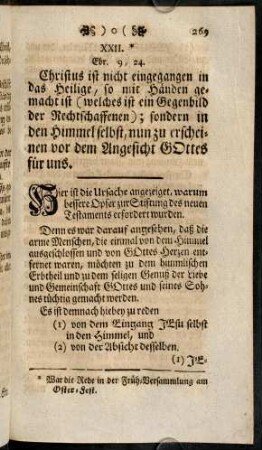 )o( 269
XXII. *
Ebr. 9, 24.
Christus ist nicht eingegangen in
das Heilige, so mit Händen ge-
macht ist (welches ist ein Gegenbild
der Rechtschaffenen); sondern in
den Himmel selbst, nun zu erschei-
nen vor dem Angesicht GOttes
für uns.
Hier ist die Ursache angezeiget, warum
bessere Opfer zur Stiftung des neuen
Testaments erfordert wurden.
Denn es war darauf angesehen, daß die
arme Menschen, die einmal von dem Himmel
ausgeschlossen und von GOttes Herzen ent-
fernet waren, möchten zu dem himmlischen
Erbtheil und zu dem seligen Genuß der Liebe
und Gemeinschaft GOttes und seines Soh-
nes tüchtig gemacht werden.
Es ist demnach hiebey zu reden
(1) von dem Eingang JEsu selbst
in den Himmel, und
(2) von der Absicht desselben.
(1) JE-
* War die Rede in der Früh-Versammlung am
Oster-Fest.